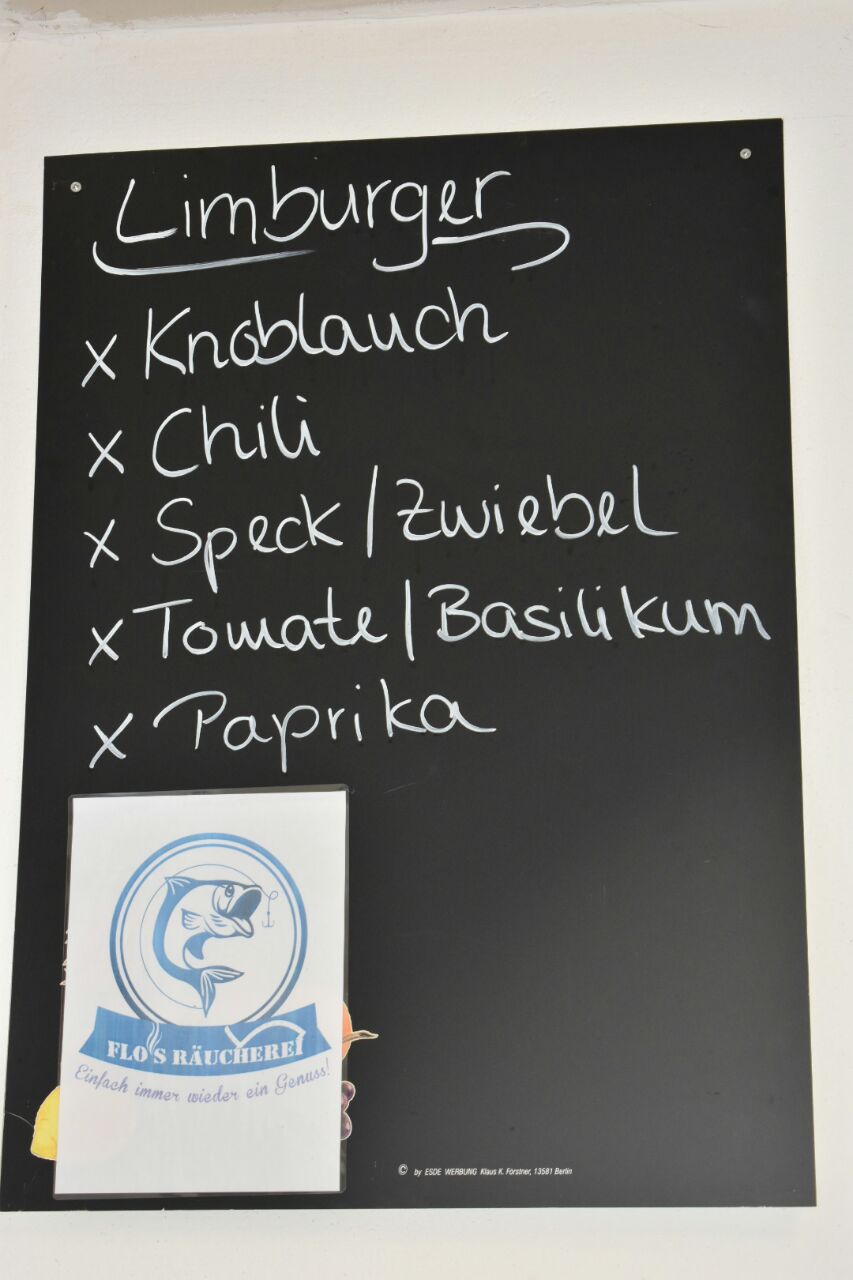 Limburger
x Knoblauch
x Chili
x Speck/Zwiebel
x Tomate/Basilikum
x Paprika
FLO'S RÄUCHEREI
Einfach immer wieder ein Genuss!
© by ESDE WERBUNG Klaus K. Förstner, 13581 Berlin